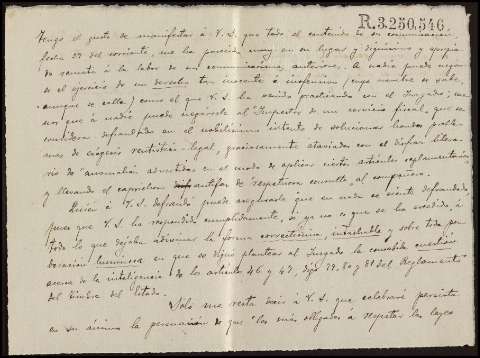 R.3.250,546
Tengo el gusto de manifestar á V. S. que todo el contenido de su comunicación,
fecha 27 del corriente, me ha parecido muy en su lugar y dignísimo y propio
de remate á la labor de sus comunicaciones anteriores. A nadie puede negar-
se el ejercicio de un derecho tan inocente é inofensivo (cuyo nombre se sabe,
aunque se calla) como el que V. S. ha venido practicando con el Juzgado; me-
nos que á nadie puede negársele al Inspector de un servicio fiscal, que se
considera defraudado en el nobilísimo intento de solucionar hondos proble-
mas de exégesis rentístico-legal, graciosamente ataviados con el disfraz litera-
rio de "anomalías advertidas en el modo de aplicar ciertos artículos reglamentarios,
y llevando el caprichoso antifaz de "respetuosa consulta al compañero.
Quien á V. S. defraudó puede asegurarle que en nada se siente defraudado,
pues que V. S. ha respondido cumplidamente, si ya no es que se ha excedido, á
todo lo que dejaba adivinar la forma correctísima, intachable y sobre toda pon-
deración luminosa en que se dignó plantear al Juzgado la consabida cuestión
acerca de la inteligencia de los artículos 46 y 47, digo 79, 80 y 81 del Reglamento
del Timbre del Estado.
Solo me resta decir á V. S. que celebraré persista
en su ánimo la persuasión de que "los más obligados á respetar las leyes